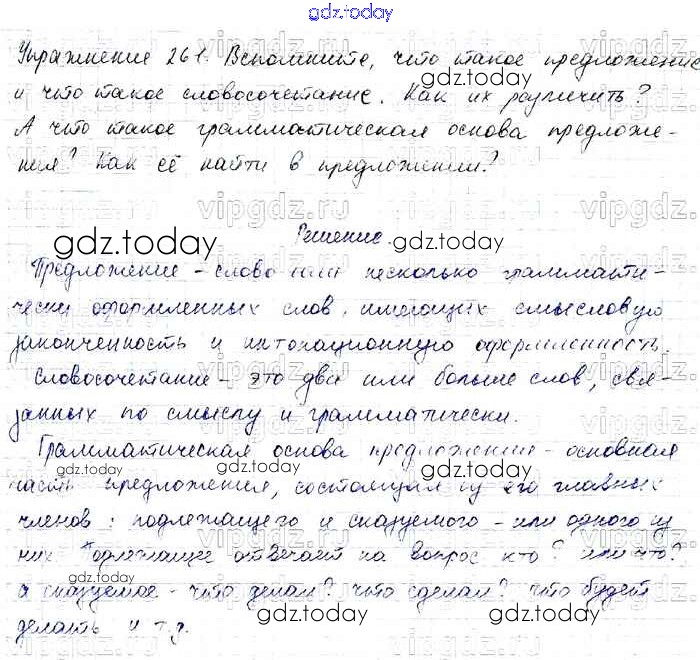 gdz.today
Упражнение 261. Вспомните, что такое предложение
и что такое словосочетание. Как их различить?
А что такое грамматическая основа предложе-
ния? Как её найти в предложении?
Решение.
Предложение - слово или несколько граммати-
чески оформленных слов, имеющих смысловую
законченность и интонационную оформленность.
Словосочетание - это два или больше слов, свя-
занных по смыслу и грамматически.
Грамматическая основа предложения - основная
часть предложения, состоящая из его главных
членов: подлежащего и сказуемого - или одного из
них. Подлежащее отвечает на вопрос кто? или что?
а сказуемое - что делал? что сделал? что будет
делать и т.д.